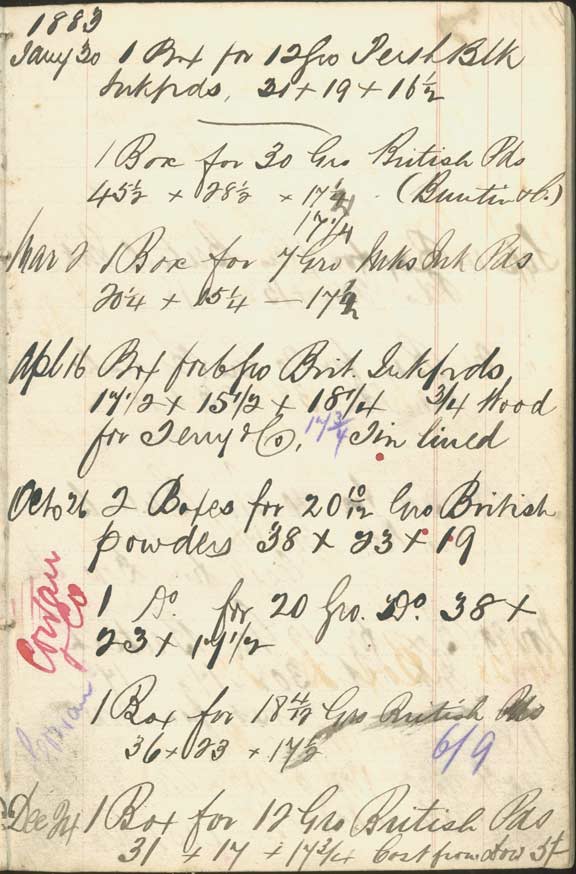 1883
Jany 30 1 Box for 12 Gro Persh Blk
Inkpds, 31 + 19 + 16 1/2
1 Box for 30 Gro British Pds
45 1/2 × 28 1/2 × 17 1/4 (Buntin & Co.)
17 1/4
Mar 2 1 Box for 7 Gro Inks Ink Pds
20 1/4 + 15 1/4 — 17 1/2
Apl 16 Box for 6 Gro Brit. Inkpds
17 1/2 + 15 1/2 + 18 1/4 3/4 Wood
for Terry & Co, 17 3/4 Tin lined
Octo 26 2 Boxes for 20 10/12 Gro British
powders 38 × 23 × 19
1 Do. for 20 Gro. Do. 38 ×
23 × 17 1/2
Cowan
& Co
1 Box for 18 4/12 Gro British Pds
36 × 23 × 17 1/2 6/9
Dec 24 1 Box for 12 Gro British Pds
31 + 17 + 17 3/4 Cost from Dow 5/